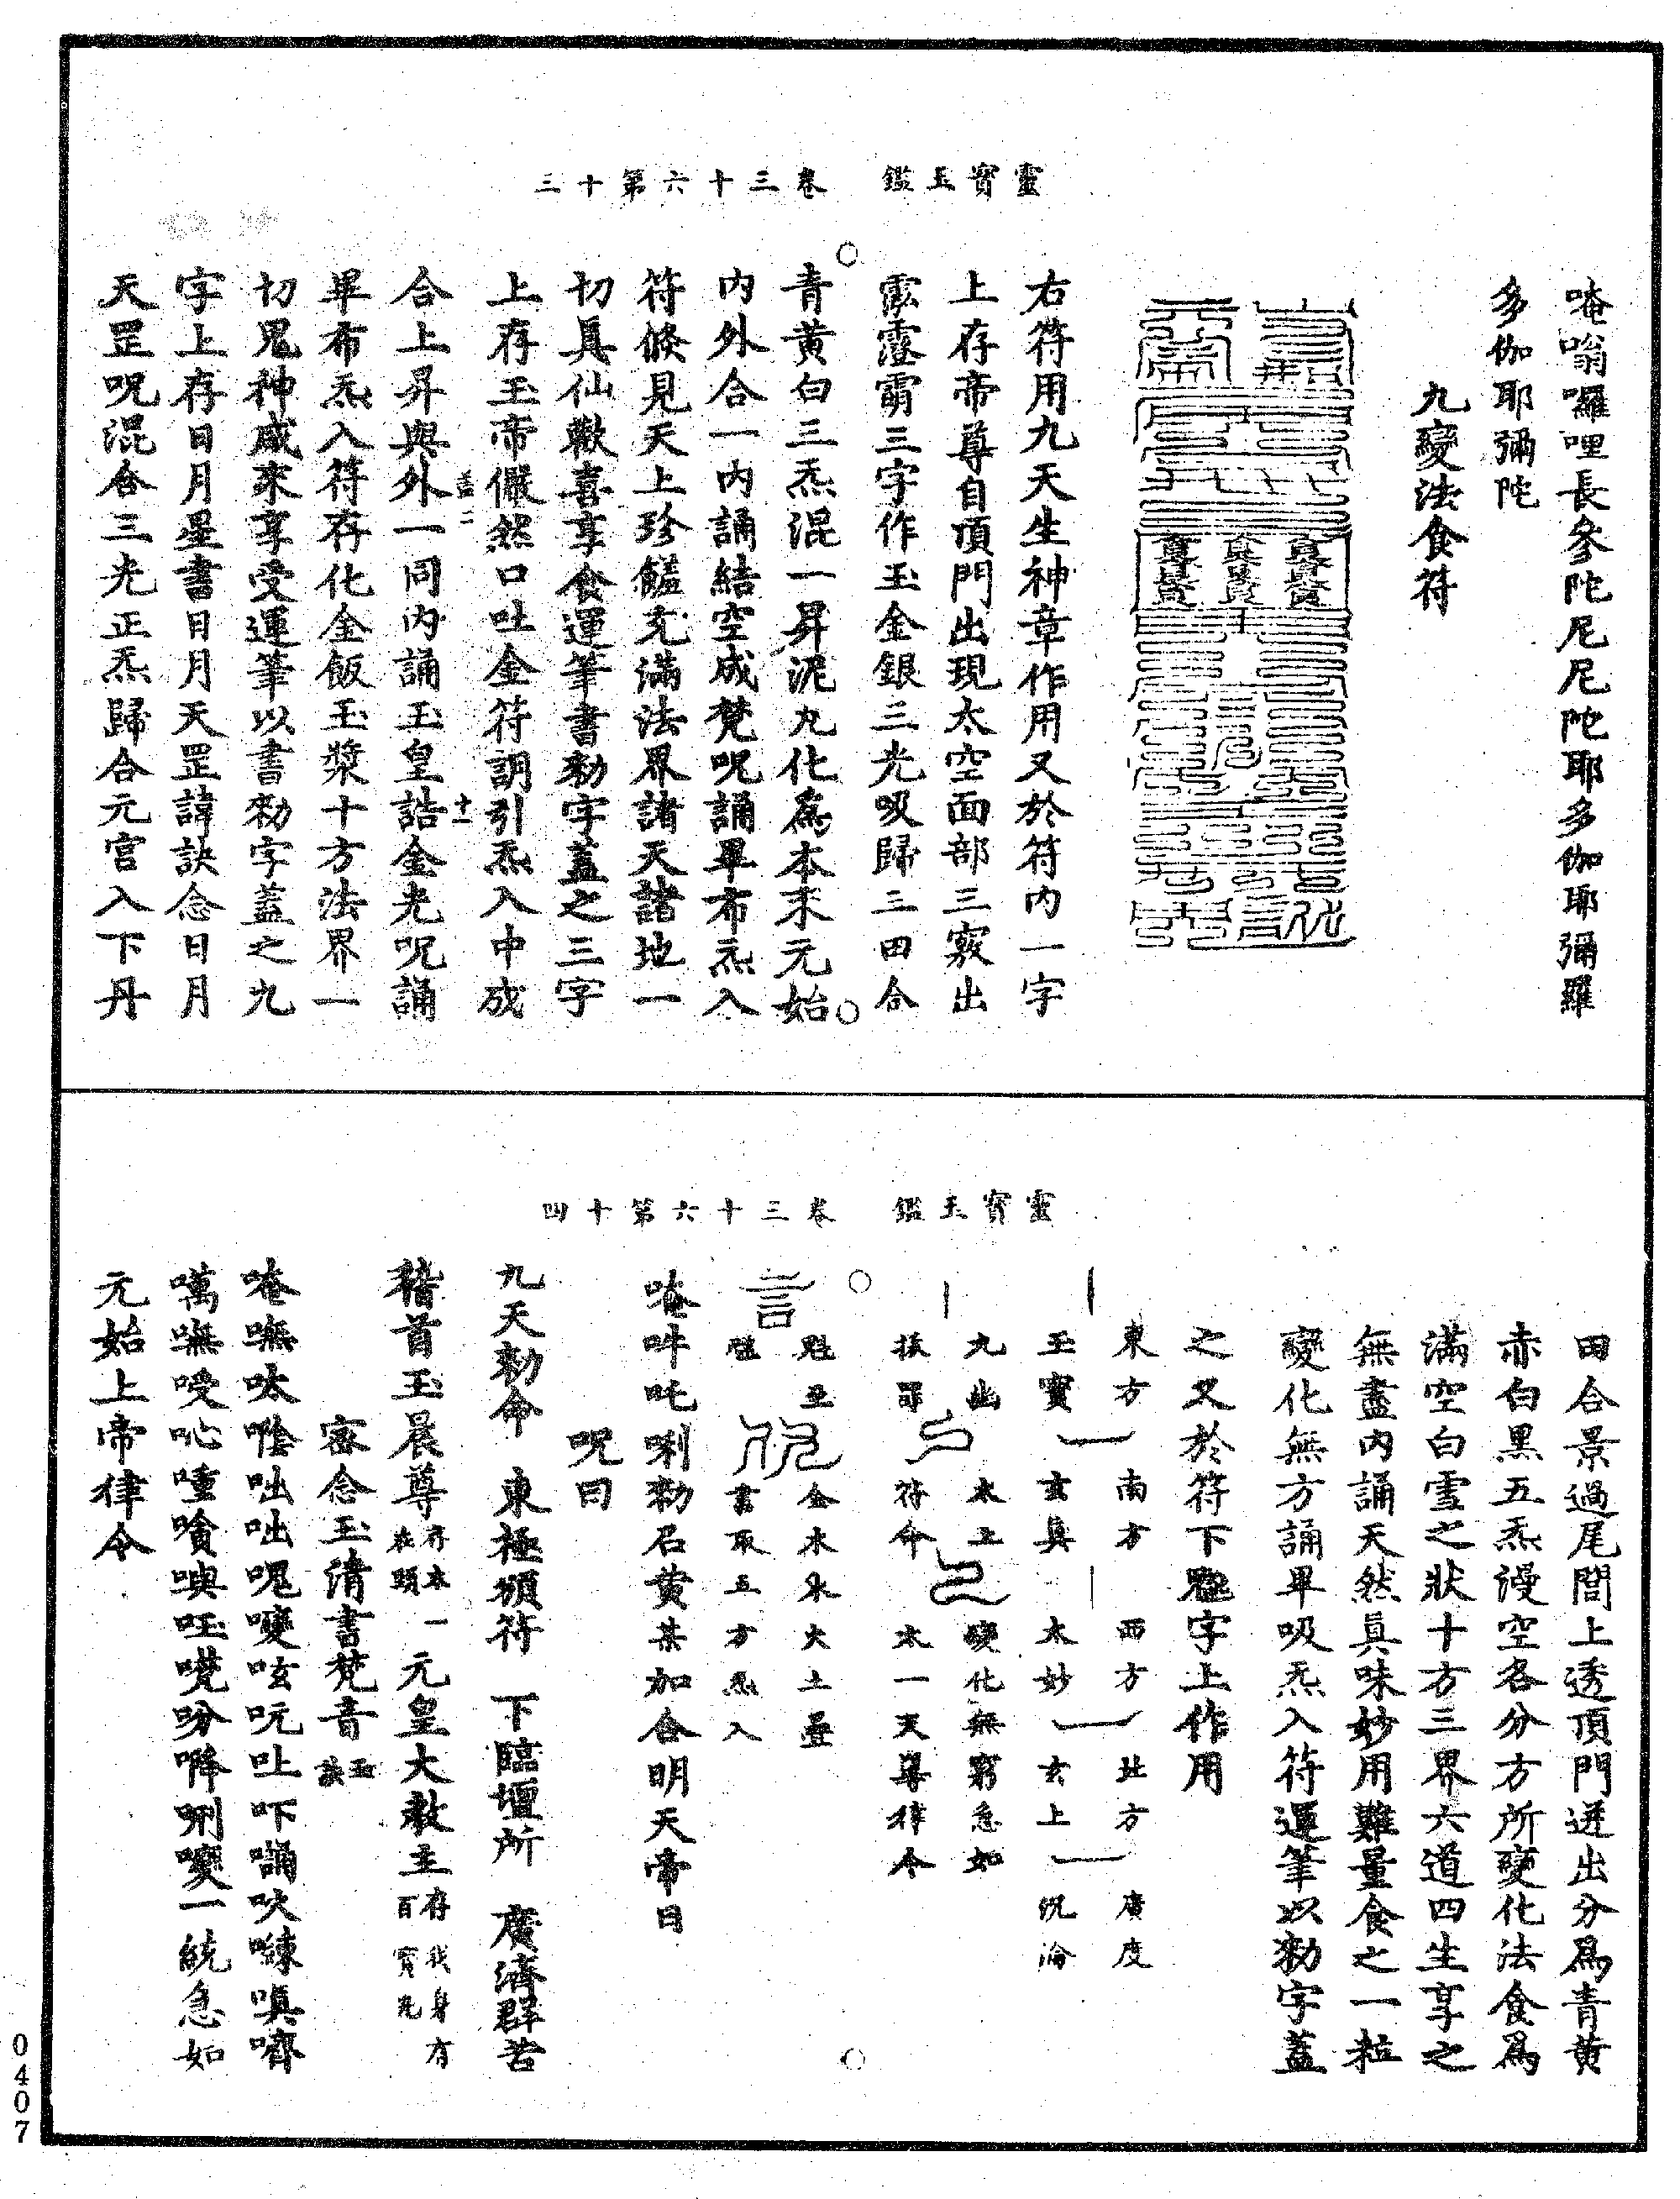 靈寶玉鑑　卷三十六第十三
唵嗡囉哩長參陀尼尼陀耶多伽耶彌羅
多伽耶彌陀
九變法食符
右符用九天生神章作用又於符內一字
上存帝尊自頂門出現太空面部三竅出
三字作玉金銀三光吸歸三田合
青黃白三炁混一昇泥丸化爲本來元始
內外合一內誦結空成梵呪誦畢布炁入
符倏見天上珍饈充滿法界諸天諸地一
切真仙歡喜享食運筆書勑字蓋之三字
上存玉帝儼然口吐金符調引炁入中成
合上昇與外一同內誦玉皇誥金光呪誦
畢布炁入符存化金飯玉漿十方法界一
切鬼神咸來享受運筆以書勑字蓋之九
字上存日月星書日月天罡諱訣念日月
天罡呪混合三光正炁歸合元宮入下丹
靈寶玉鑑　卷三十六第十四
田合景過尾閭上透頂門迸出分爲青黃
赤白黑五炁漫空各分方所變化法食爲
滿空白雪之狀十方三界六道四生享之
無盡內誦天然真味妙用難量食之一粒
變化無方誦畢吸炁入符運筆以勑字蓋
之又於符下字上作用
東方　南方　西方　北方　廣度
玉寶　玄真　太妙　玄上　沉淪
九幽　太上　變化無窮急如
拔罪　符命　太一天尊律令
魁　金木水火土疊
魁　書取五方炁入
唵吽吒唎勑召黃某加合明天帝日
呪曰
九天勑命　東極頒符　下臨壇所　廣濟群苦
稽首玉晨尊存本一在頭　元皇大教主存我身有百寶光
密念玉清書梵音玉訣
唵嘸呔唫咄咄嘰變呟吭吐吓誦吷嗹嗔嚌
噧嘸唛吣喠噲噳咥嘰吩嗶唎變一統急如
元始上帝律令
0407